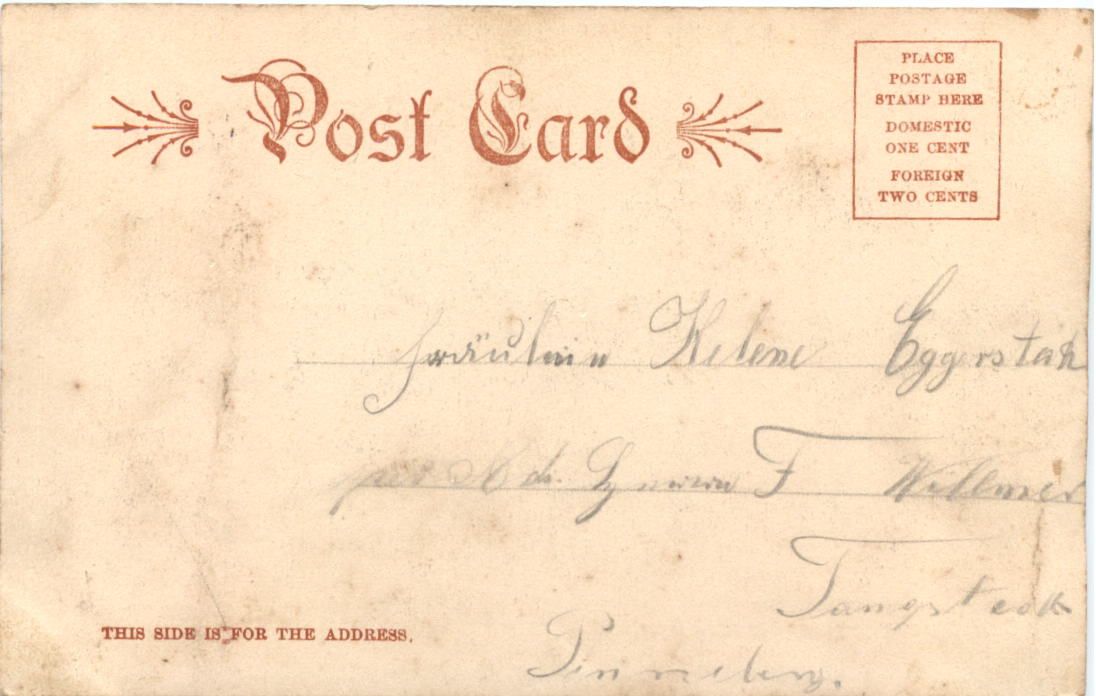 Post Card
PLACE
POSTAGE
STAMP HERE
DOMESTIC
ONE CENT
FOREIGN
TWO CENTS
Fräulein Helene
F Willmer
Tangstedt
Pinneberg.
THIS SIDE IS FOR THE ADDRESS.